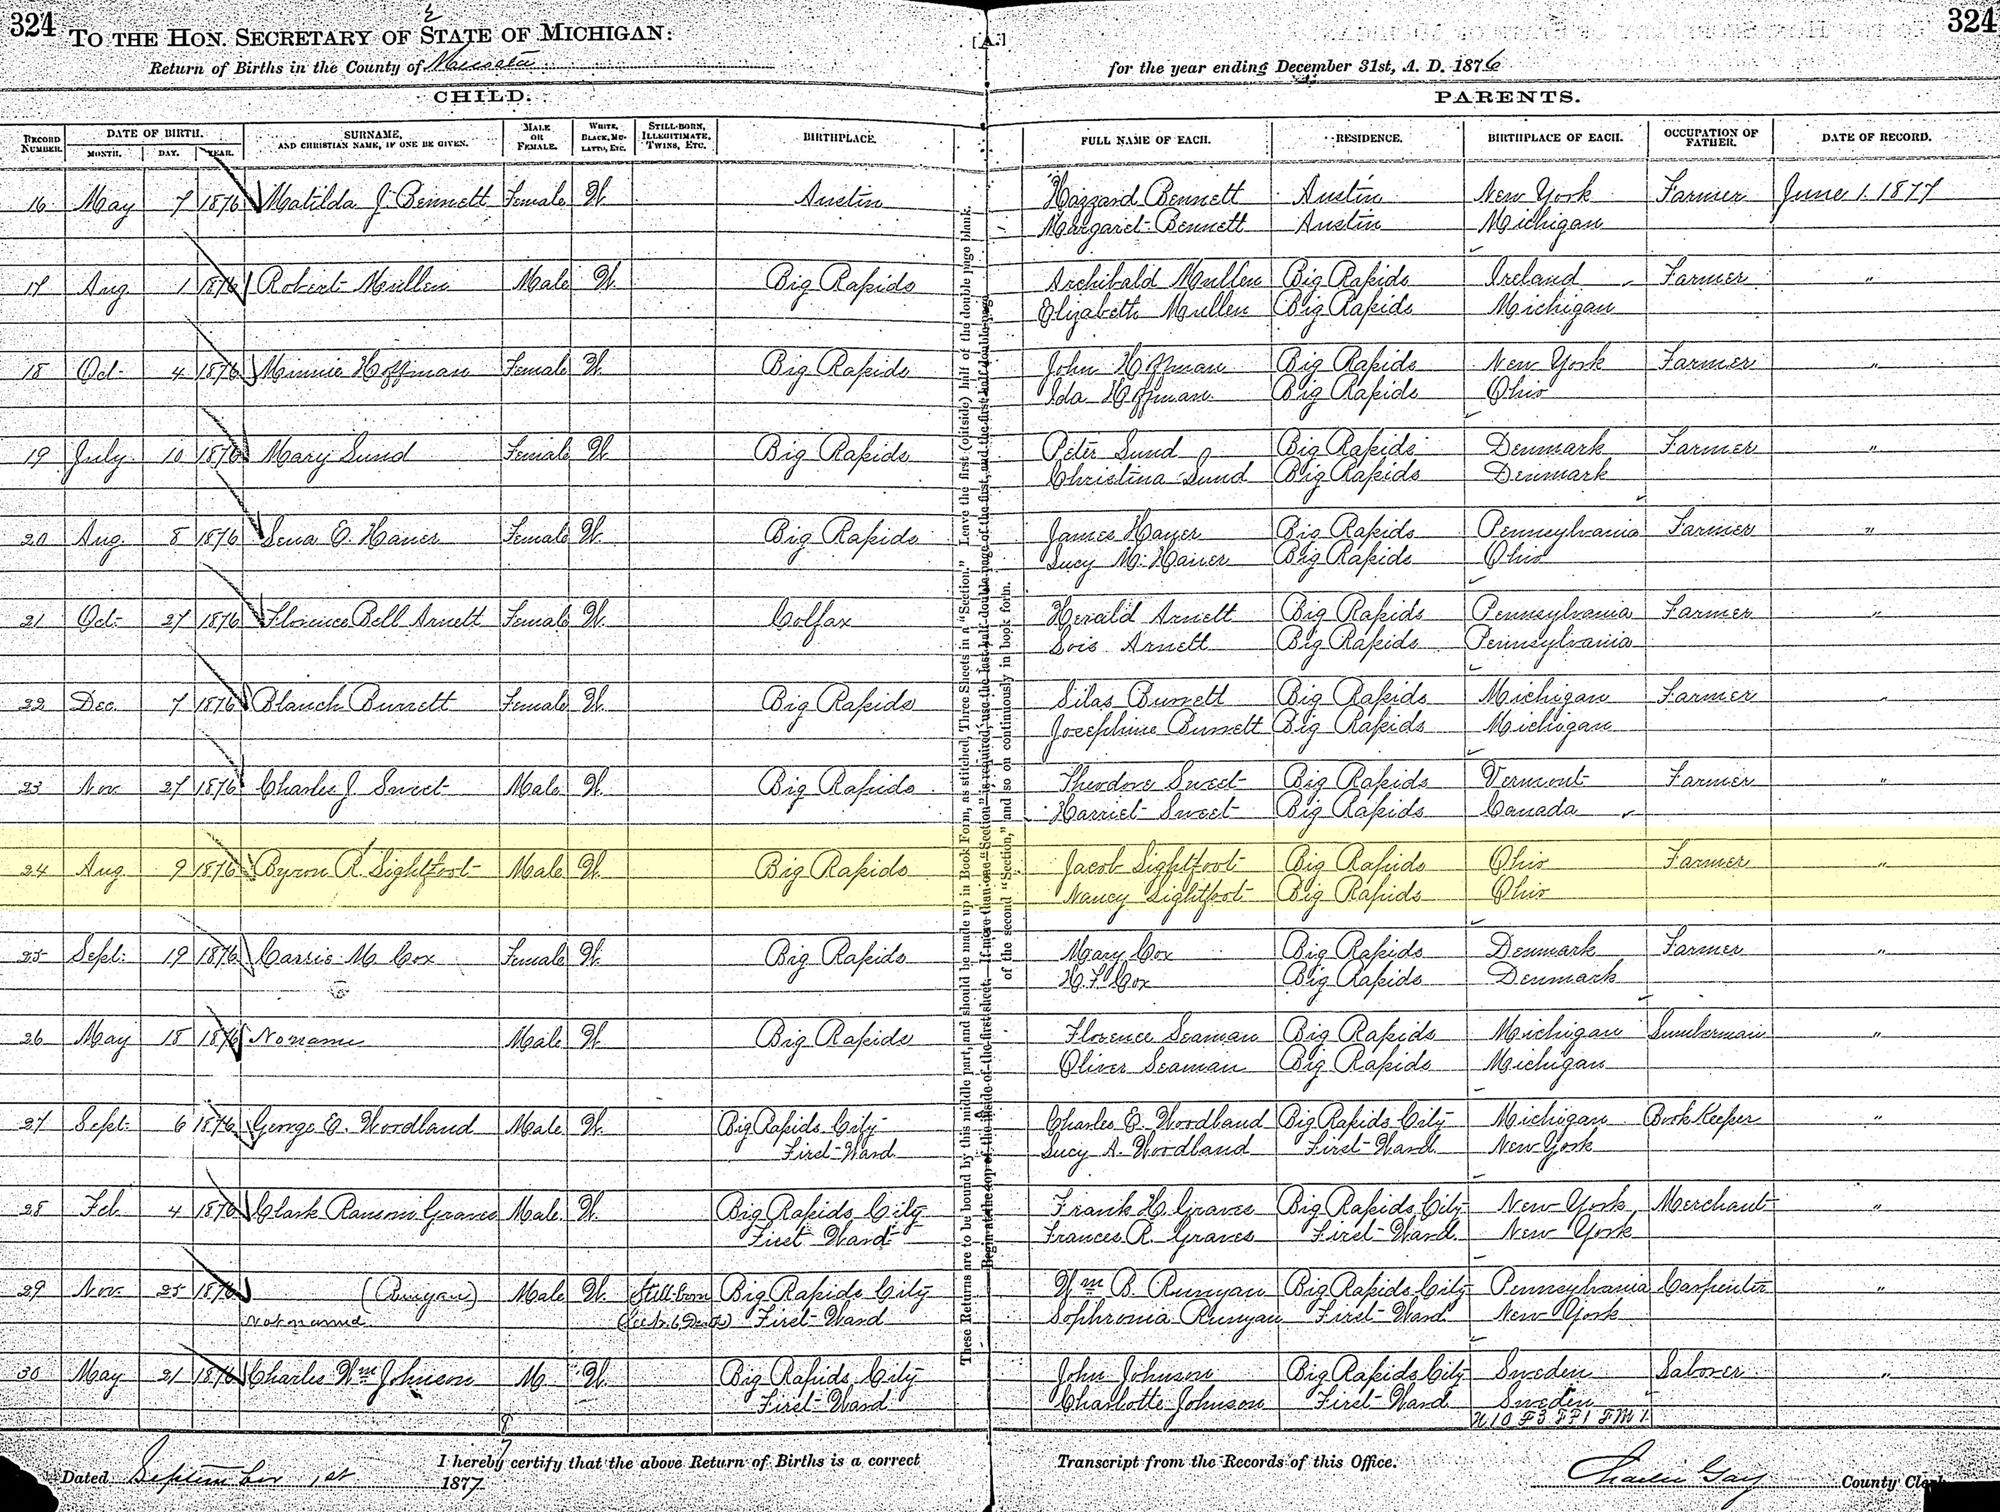 324 TO THE HON. SECRETARY OF STATE OF MICHIGAN: [A.] 324
Return of Births in the County of for the year ending December 31st, A. D. 1876
CHILD. PARENTS.
RECORD NUMBER. DATE OF BIRTH. MONTH. DAY. YEAR. SURNAME, AND CHRISTIAN NAME, IF ONE BE GIVEN. MALE OR FEMALE. WHITE, BLACK, MULATTO, ETC. STILL-BORN, ILLEGITIMATE, TWINS, ETC. BIRTHPLACE. FULL NAME OF EACH. RESIDENCE. BIRTHPLACE OF EACH. OCCUPATION OF FATHER. DATE OF RECORD.
16 May 7 1876 Matilda J Bennett Female W. Austin Hazzard Bennett Austin New York Farmer June 1. 1877
Margaret Bennett Austin Michigan
17 Aug 1 1876 Robert Mullen Male W. Big Rapids Archibald Mullen Big Rapids Ireland Farmer "
Elizabeth Mullen Big Rapids Michigan
18 Oct 4 1876 Minnie Hoffman Female W. Big Rapids John Hoffman Big Rapids New York Farmer "
Ida Hoffman Big Rapids Ohio
19 July 10 1876 Mary Lund Female W. Big Rapids Peter Lund Big Rapids Denmark Farmer "
Christina Lund Big Rapids Denmark
20 Aug. 8 1876 Lena E. Haner Female W. Big Rapids James Haner Big Rapids Pennsylvania Farmer "
Lucy M. Haner Big Rapids Ohio
21 Oct 27 1876 Florence Bell Arnett Female W. Colfax Herald Arnett Big Rapids Pennsylvania Farmer "
Lois Arnett Big Rapids Pennsylvania
22 Dec. 7 1876 Blanch Burrett Female W. Big Rapids Silas Burrett Big Rapids Michigan Farmer "
Josephine Burrett Big Rapids Michigan
23 Nov 27 1876 Charles J Sweet Male W. Big Rapids Theodore Sweet Big Rapids Vermont Farmer "
Harriet Sweet Big Rapids Canada
24 Aug 9 1876 Byron R. Lightfoot Male W. Big Rapids Jacob Lightfoot Big Rapids Ohio Farmer "
Nancy Lightfoot Big Rapids Ohio
25 Sept. 19 1876 Carrie M Cox Female W. Big Rapids Mary Cox Big Rapids Denmark Farmer "
H. F. Cox Big Rapids Denmark
26 May 18 1876 No name Male W. Big Rapids Florence Seaman Big Rapids Michigan Lumberman "
Oliver Seaman Big Rapids Michigan
27 Sept. 6 1876 George E. Woodland Male W. Big Rapids City Charles E. Woodland Big Rapids City Michigan Book Keeper "
First Ward Lucy A. Woodland First Ward New York
28 Feb. 4 1876 Clark Ransom Graves Male W. Big Rapids City Frank H. Graves Big Rapids City New York Merchant "
First Ward Frances R. Graves First Ward New York
29 Nov. 25 1876 (Runyan) Male W. Still born Big Rapids City Wm B. Runyan Big Rapids City Pennsylvania Carpenter "
Not named First Ward Sophronia Runyan First Ward New York
30 May 21 1876 Charles Wm Johnson M W. Big Rapids City John Johnson Big Rapids City Sweden Laborer "
First Ward Charlotte Johnson First Ward Sweden
These Returns are to be bound by this middle part, and should be made up in Book Form, as stitched, Three Sheets in a "Section." Leave the first (outside) half of the double page blank.
Begin at the top of the inside of the first sheet. If more than one "Section" is required, use the last half-double-page of the first, and the first half-double-page
of the second "Section," and so on continuously in book form.
I hereby certify that the above Return of Births is a correct Transcript from the Records of this Office.
Dated September 1st 1877 Charlie Gay County Clerk